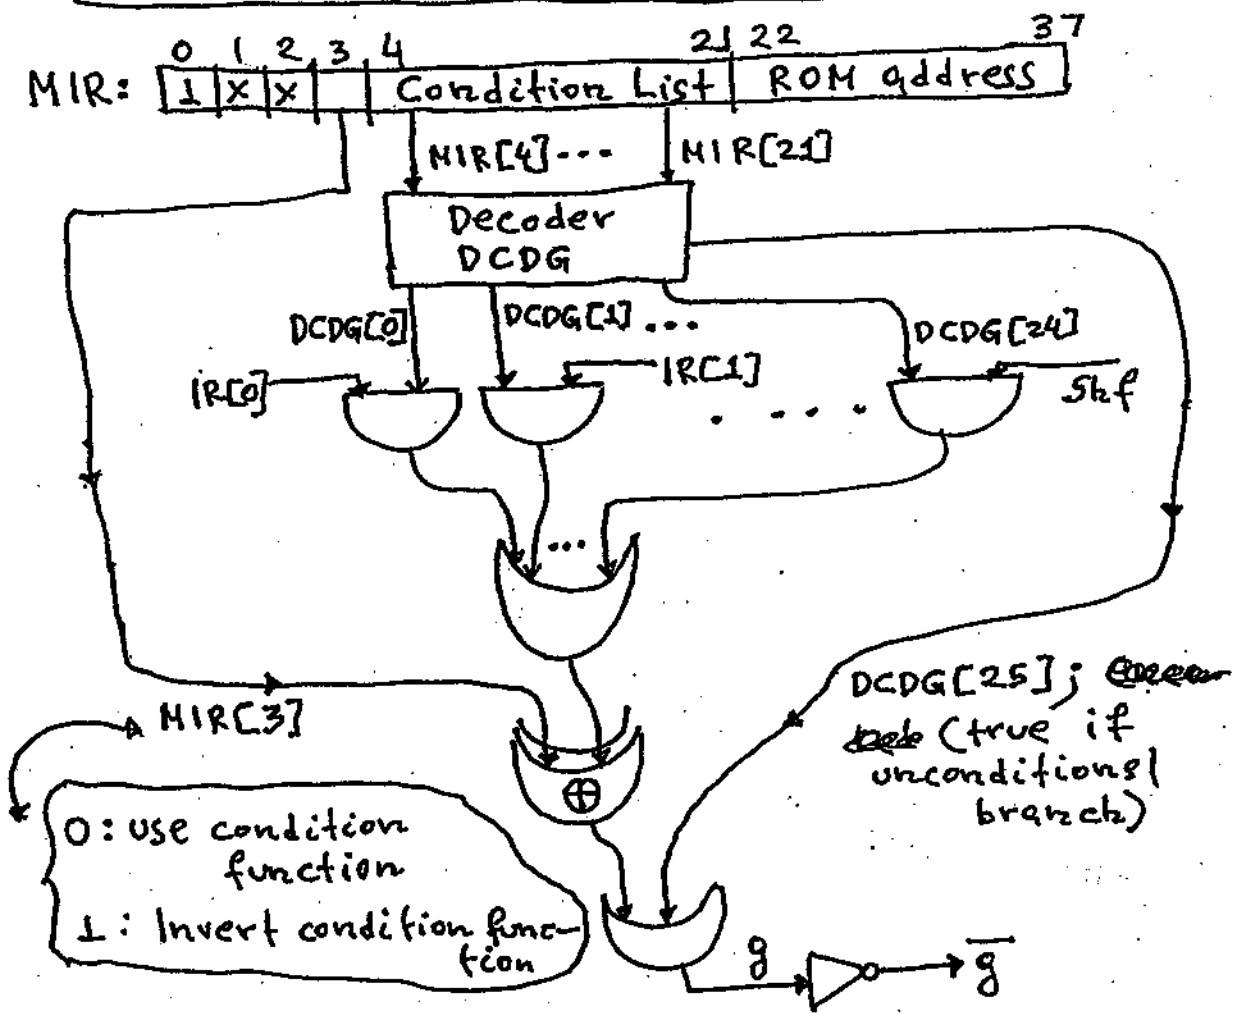 0 1 2 3 4 21 22 37
MIR: 1 x x Condition List ROM address
MIR[4]... MIR[21]
Decoder
DCDG
DCDG[0] DCDG[1]... DCDG[24]
IR[0] IR[1] Skf
...
MIR[3]
DCDG[25];
(true if
unconditional
branch)
0: use condition
function
1: Invert condition func-
tion
⊕
g g̅